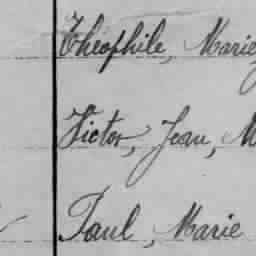 Théophile, Marie,
Victor, Jean, M
Paul, Marie